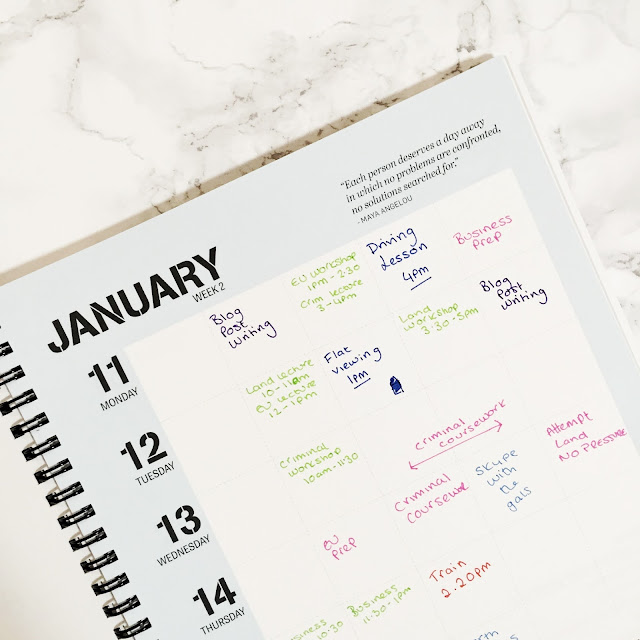 "Each person deserves a day away
in which no problems are confronted,
no solutions searched for."
- MAYA ANGELOU
JANUARY
WEEK 2
11
MONDAY
Blog
Post
Writing
EU Workshop
1pm-2:30
Crim Lecture
3-4pm
Driving
Lesson
4pm
Business
Prep
12
TUESDAY
Land Lecture
10-11am
EU Lecture
12-1pm
Flat
viewing
1pm
Land
workshop
3:30-5pm
Blog
Post
Writing
13
WEDNESDAY
Criminal
workshop
10am-11:30
criminal
coursework
14
THURSDAY
EU
prep
Criminal
Skype
with
the
gals
Attempt
Land
No PRESSURE
Business
10:30
Business
11:30-1pm
Train
2.20pm